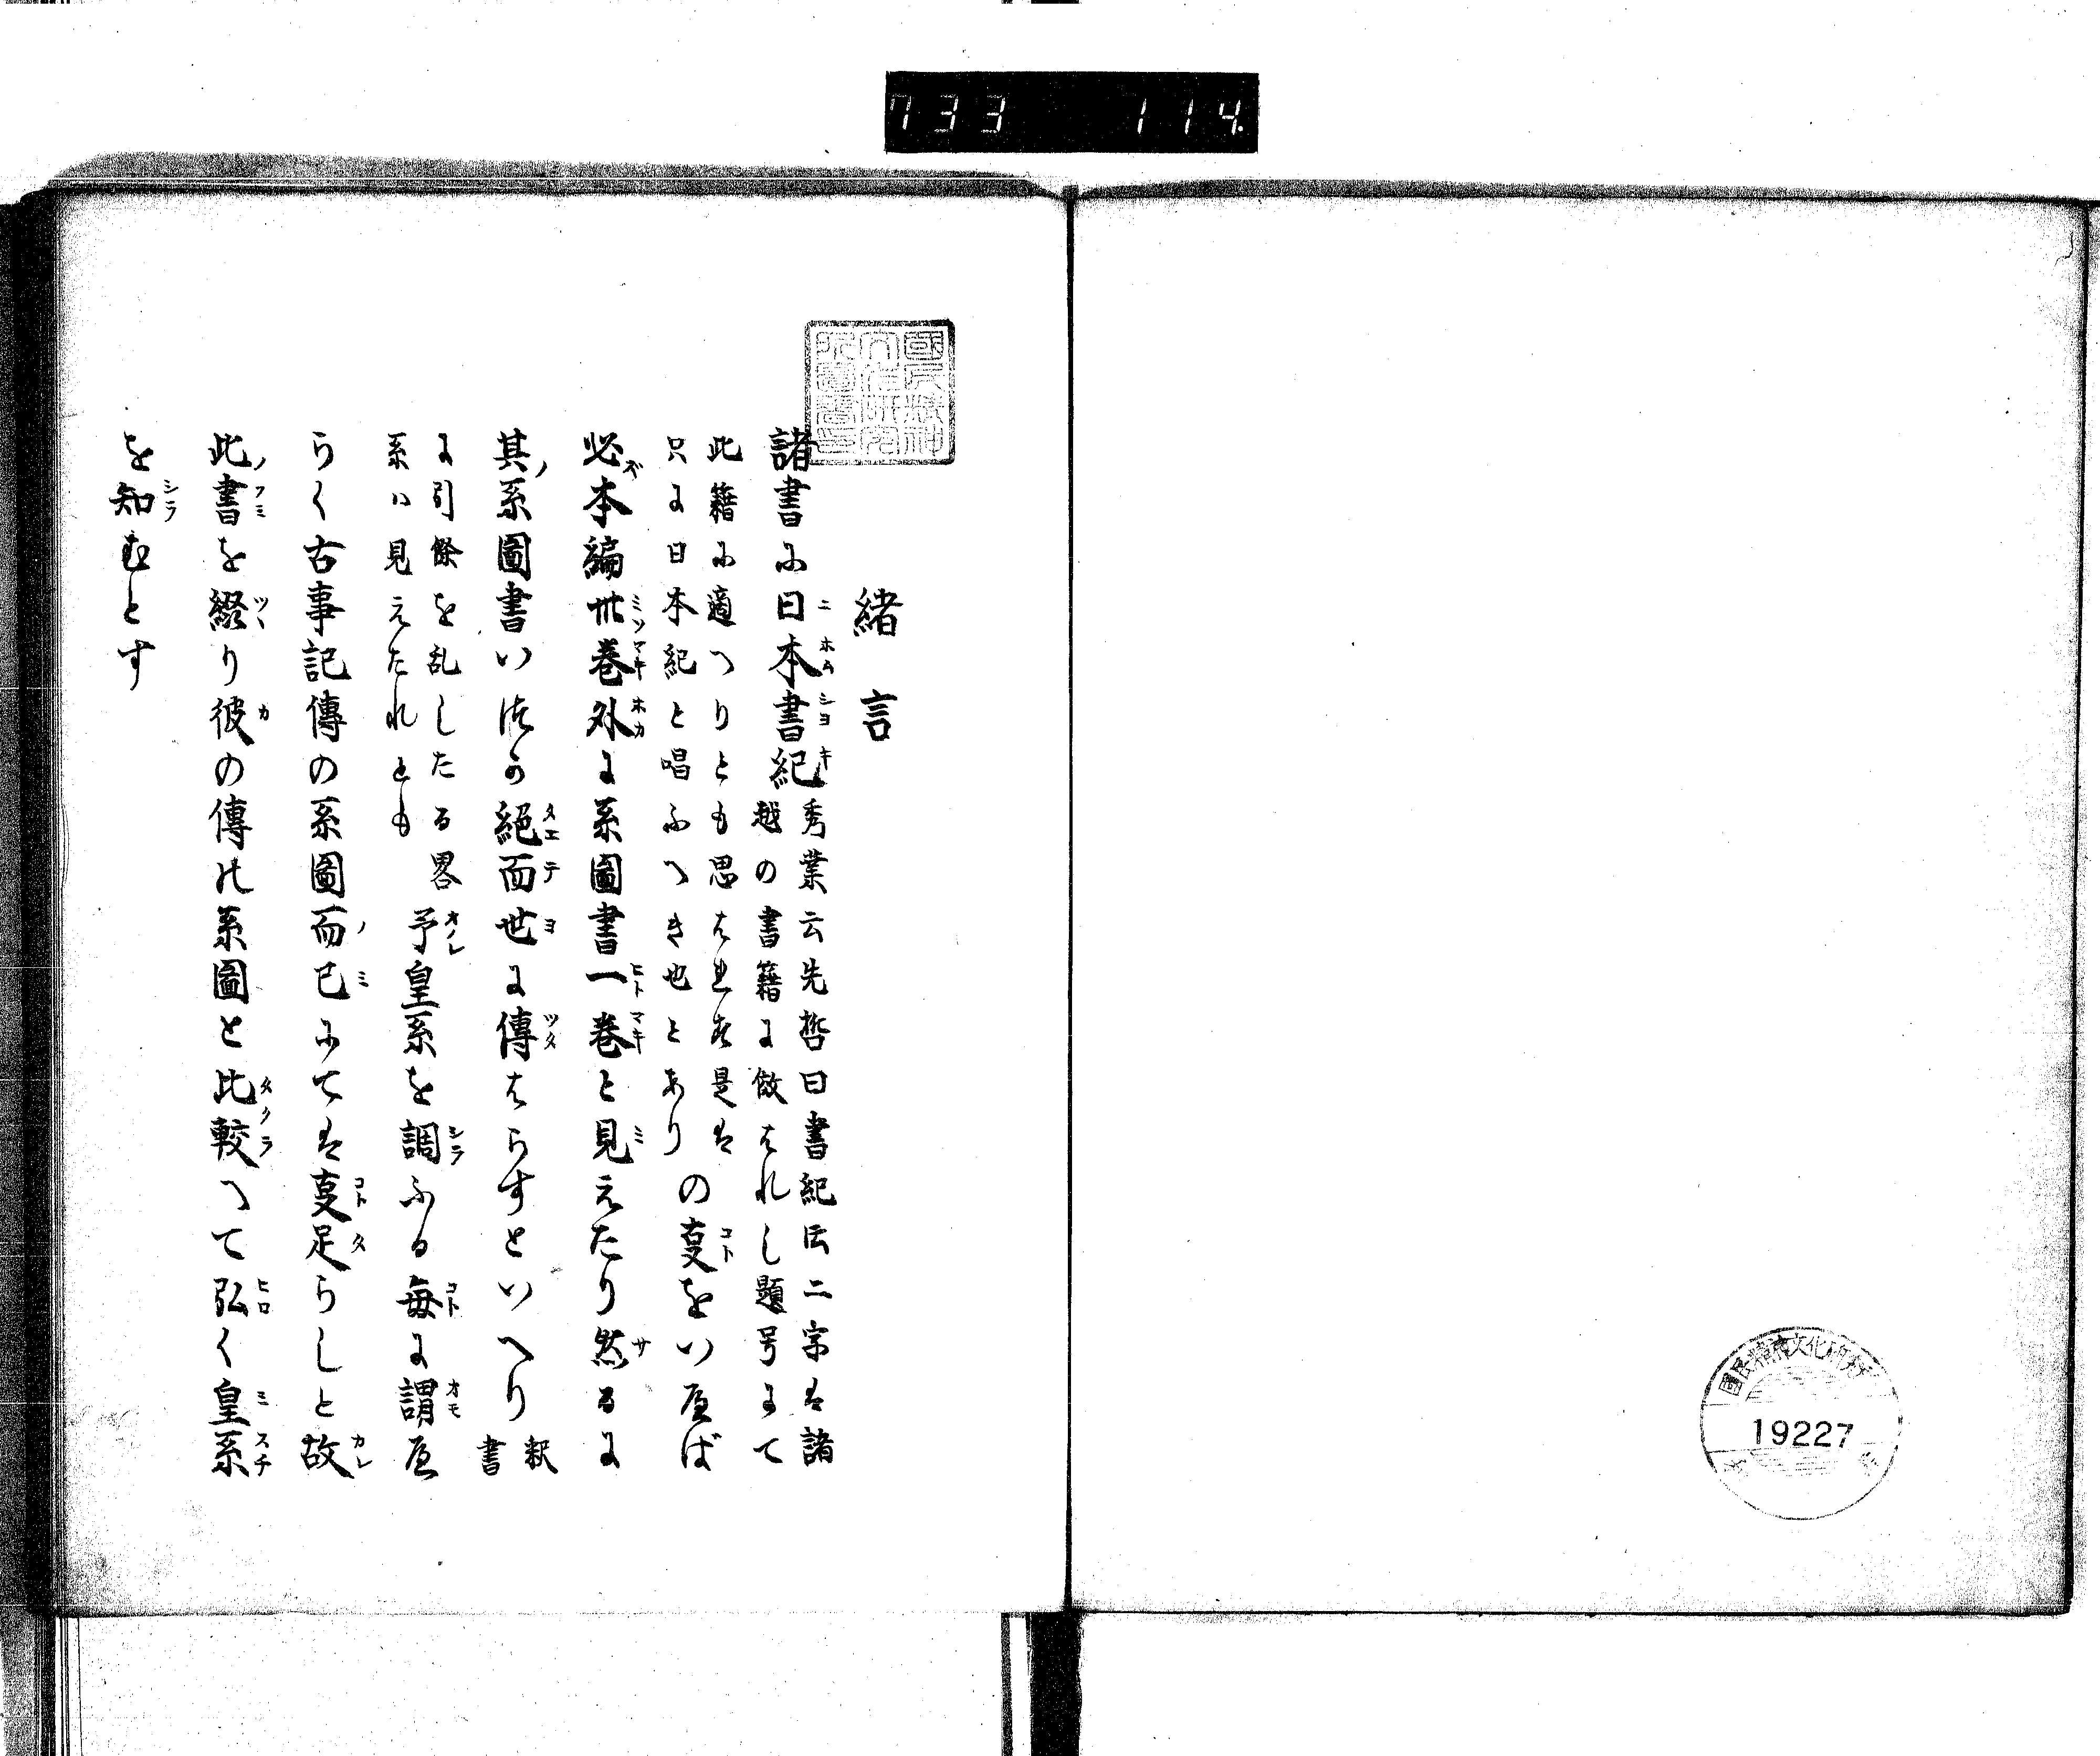 733 114
緒言
諸書に日本書紀
秀業云先哲曰書紀云二字は諸
越の書籍に倣はれし題号にて
此籍に適へりとも思はれす是は
只に日本紀と唱ふへき也とあり
の叓をいへば
必本編卅巻外に系圖書一巻と見えたり然るに
其系圖書いつか絶而世に傳はらすといへり
釈書
に引餘を乱したる畧
系は見えたれとも
予皇系を調ふる毎に謂へ
らく古事記傳の系圖而已にては叓足らしと故
此書を綴り彼の傳の系圖と比較へて弘く皇系
を知むとす
國民精神文化研究
19227